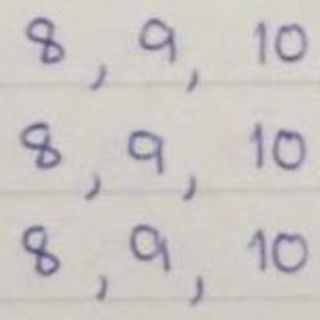 8, 9, 10
8, 9, 10
8, 9, 10